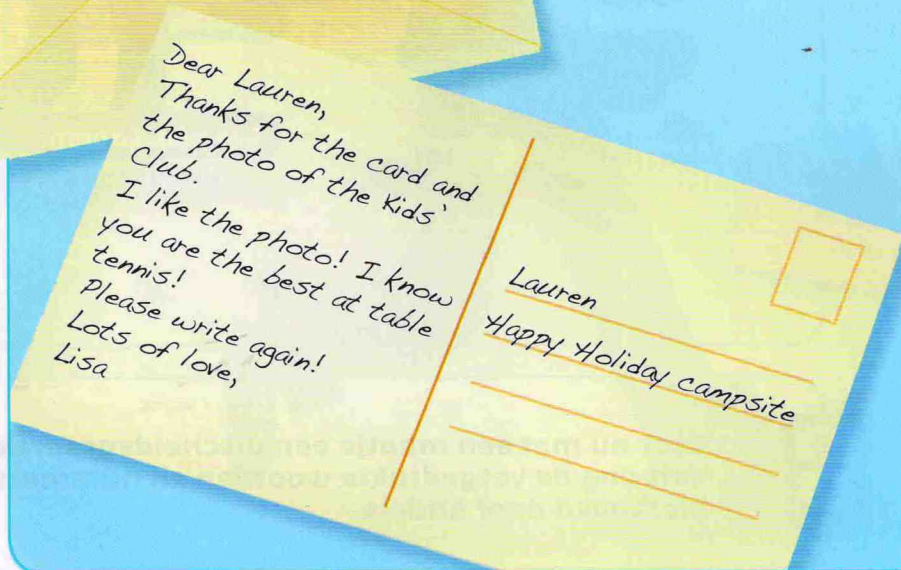 Dear Lauren,
Thanks for the card and
the photo of the Kids'
Club.
I like the photo! I know
you are the best at table
tennis!
Please write again!
Lots of love,
Lisa
Lauren
Happy Holiday campsite